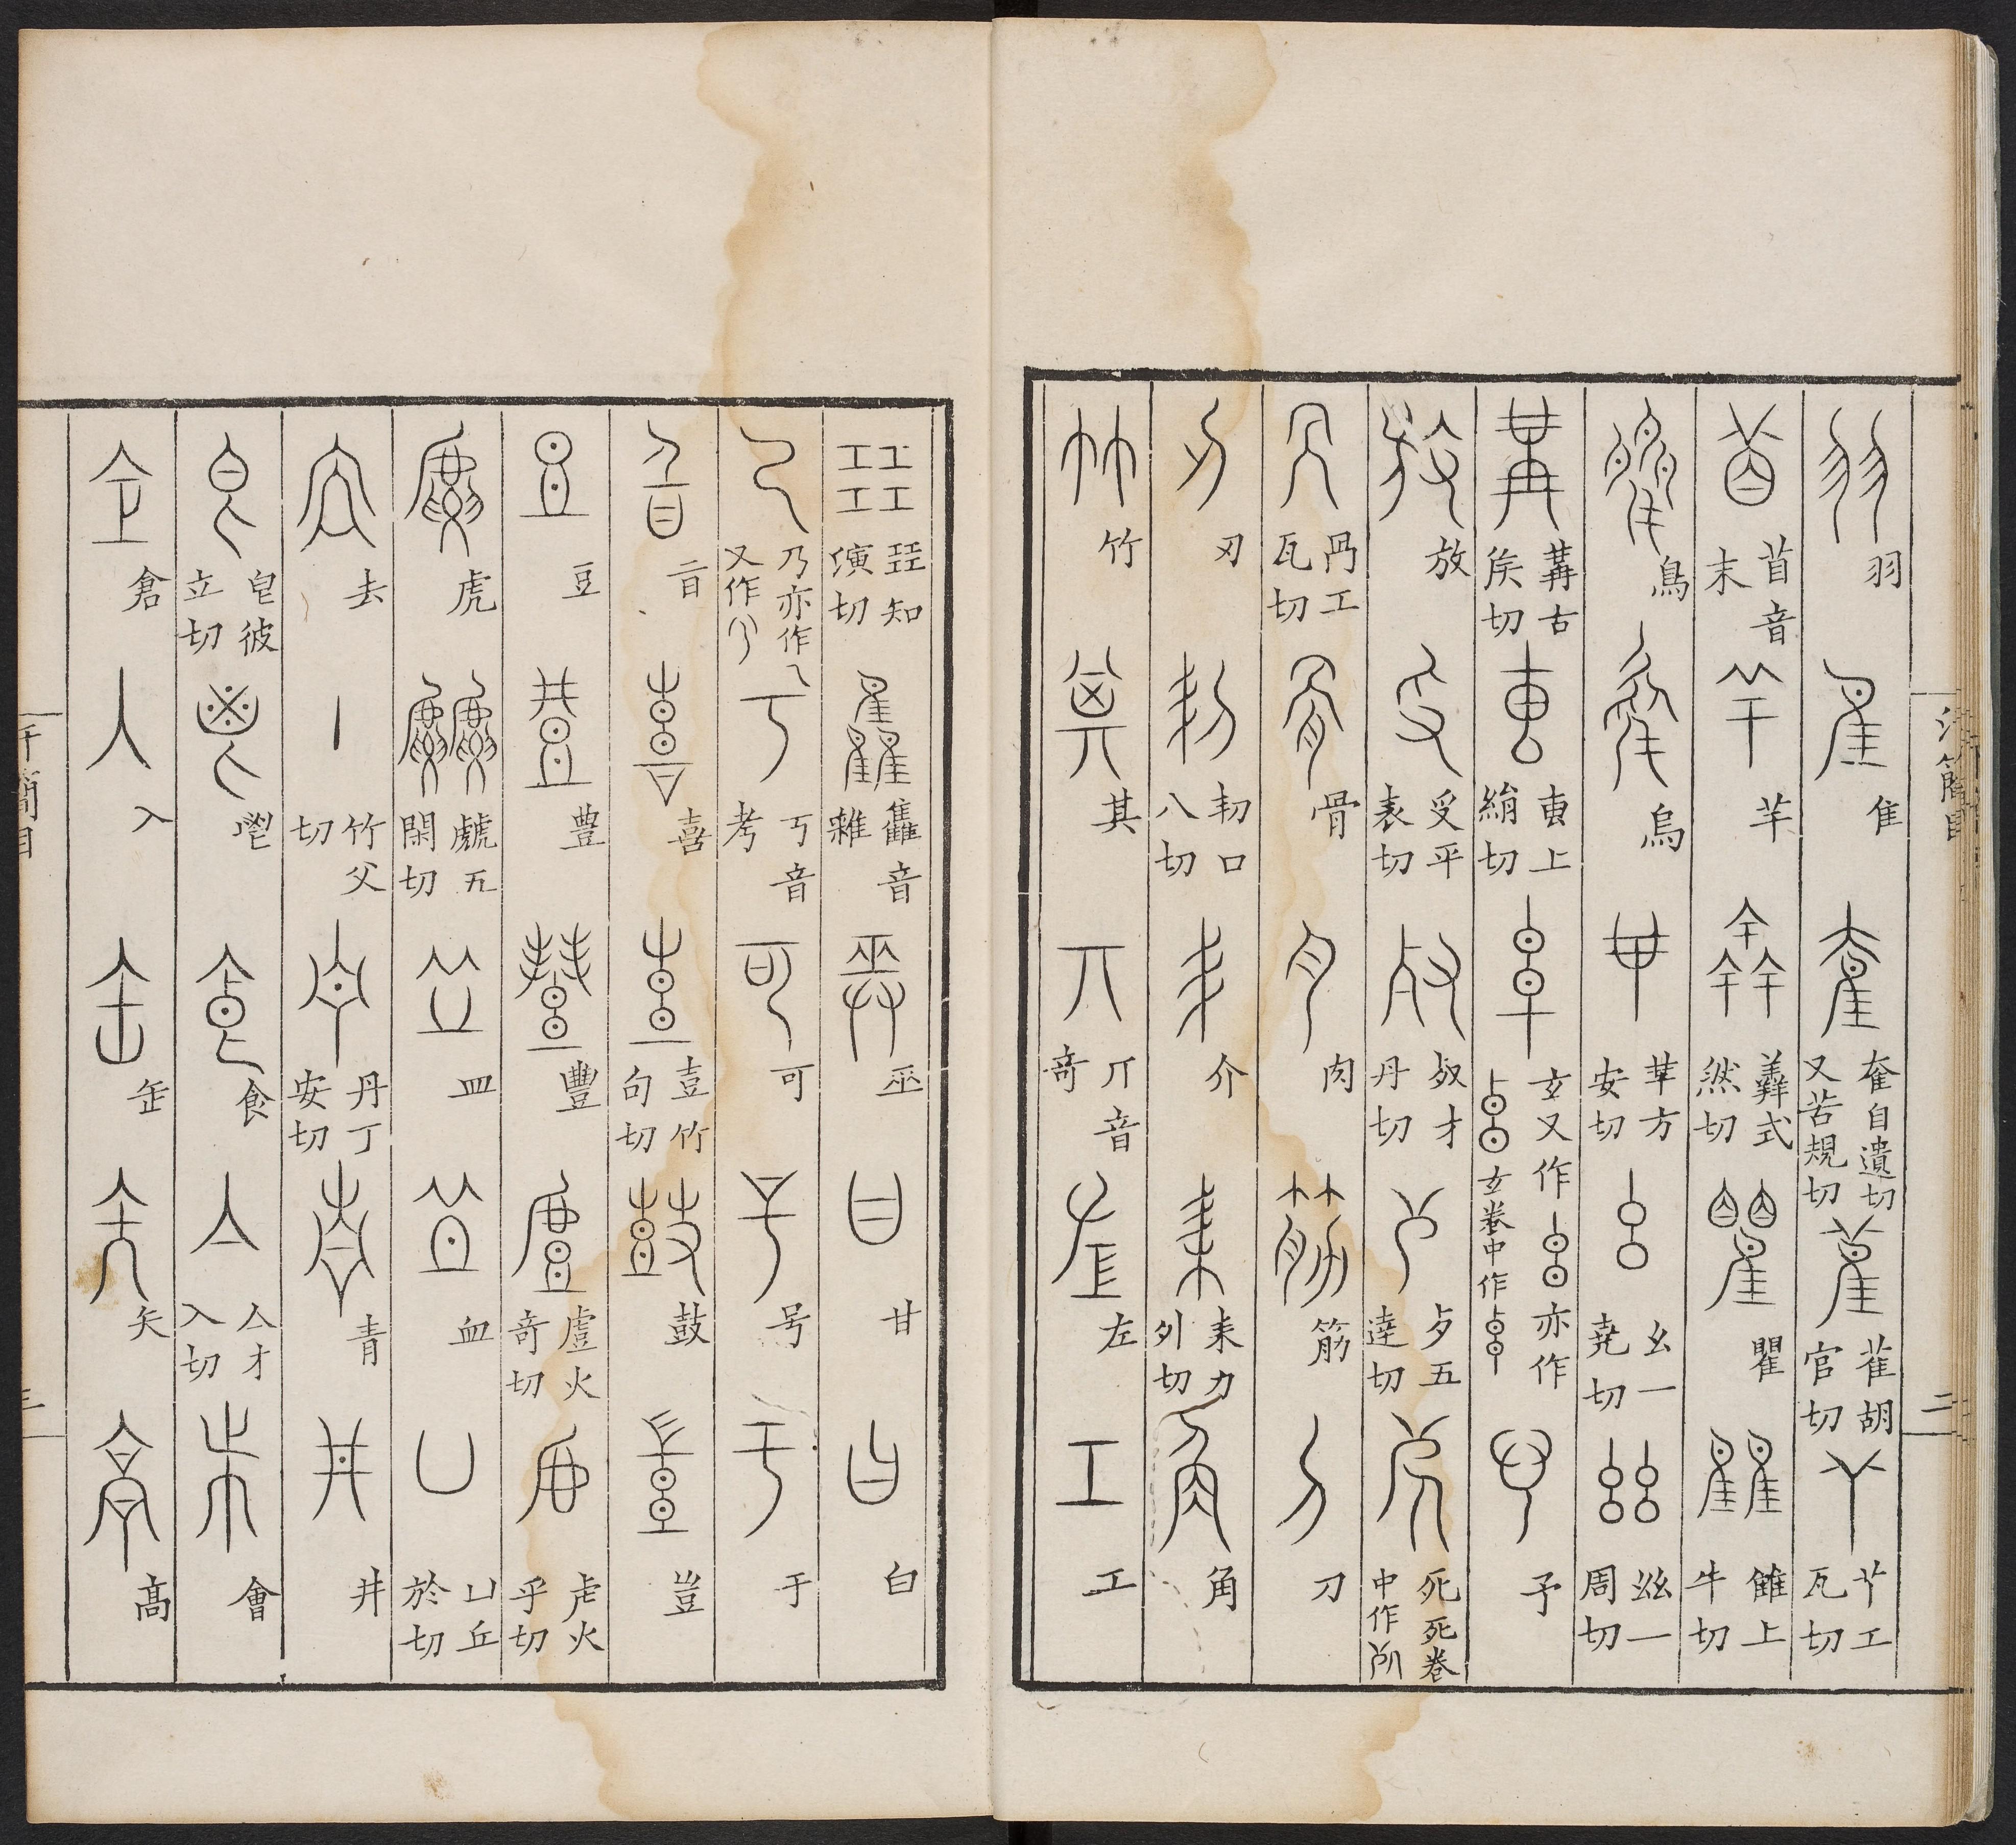 羽 隹 奞自遺切又苦規切 雈胡官切 𦫳工瓦切
𥄕音末 羊 羴式然切 瞿 雔上牛切
鳥 烏 𠦒方安切 幺一堯切 𢆶一周切
冓古矦切 叀上絹切 玄又作 亦作 玄卷中作 予
放 𠬪平表切 𣦼才丹切 歺五達切 死死卷中作
冎工瓦切 骨 肉 筋 刀
刃 㓞口八切 丯介 耒力外切 角
竹 其 丌音竒 左 工
㠭知演切 雥音雜 巫 甘 白
乃亦作 又作 丂音考 可 号 于
旨 喜 壴竹句切 鼓 豈
豆 豊 豐 䖒火竒切 虍火乎切
虎 虤五閑切 皿 血 凵丘於切
去 竹父切 丹丁安切 青 井
皀彼立切 鬯 食 亼才入切 會
倉 入 缶 矢 髙
汗簡目 二
汗簡目 三